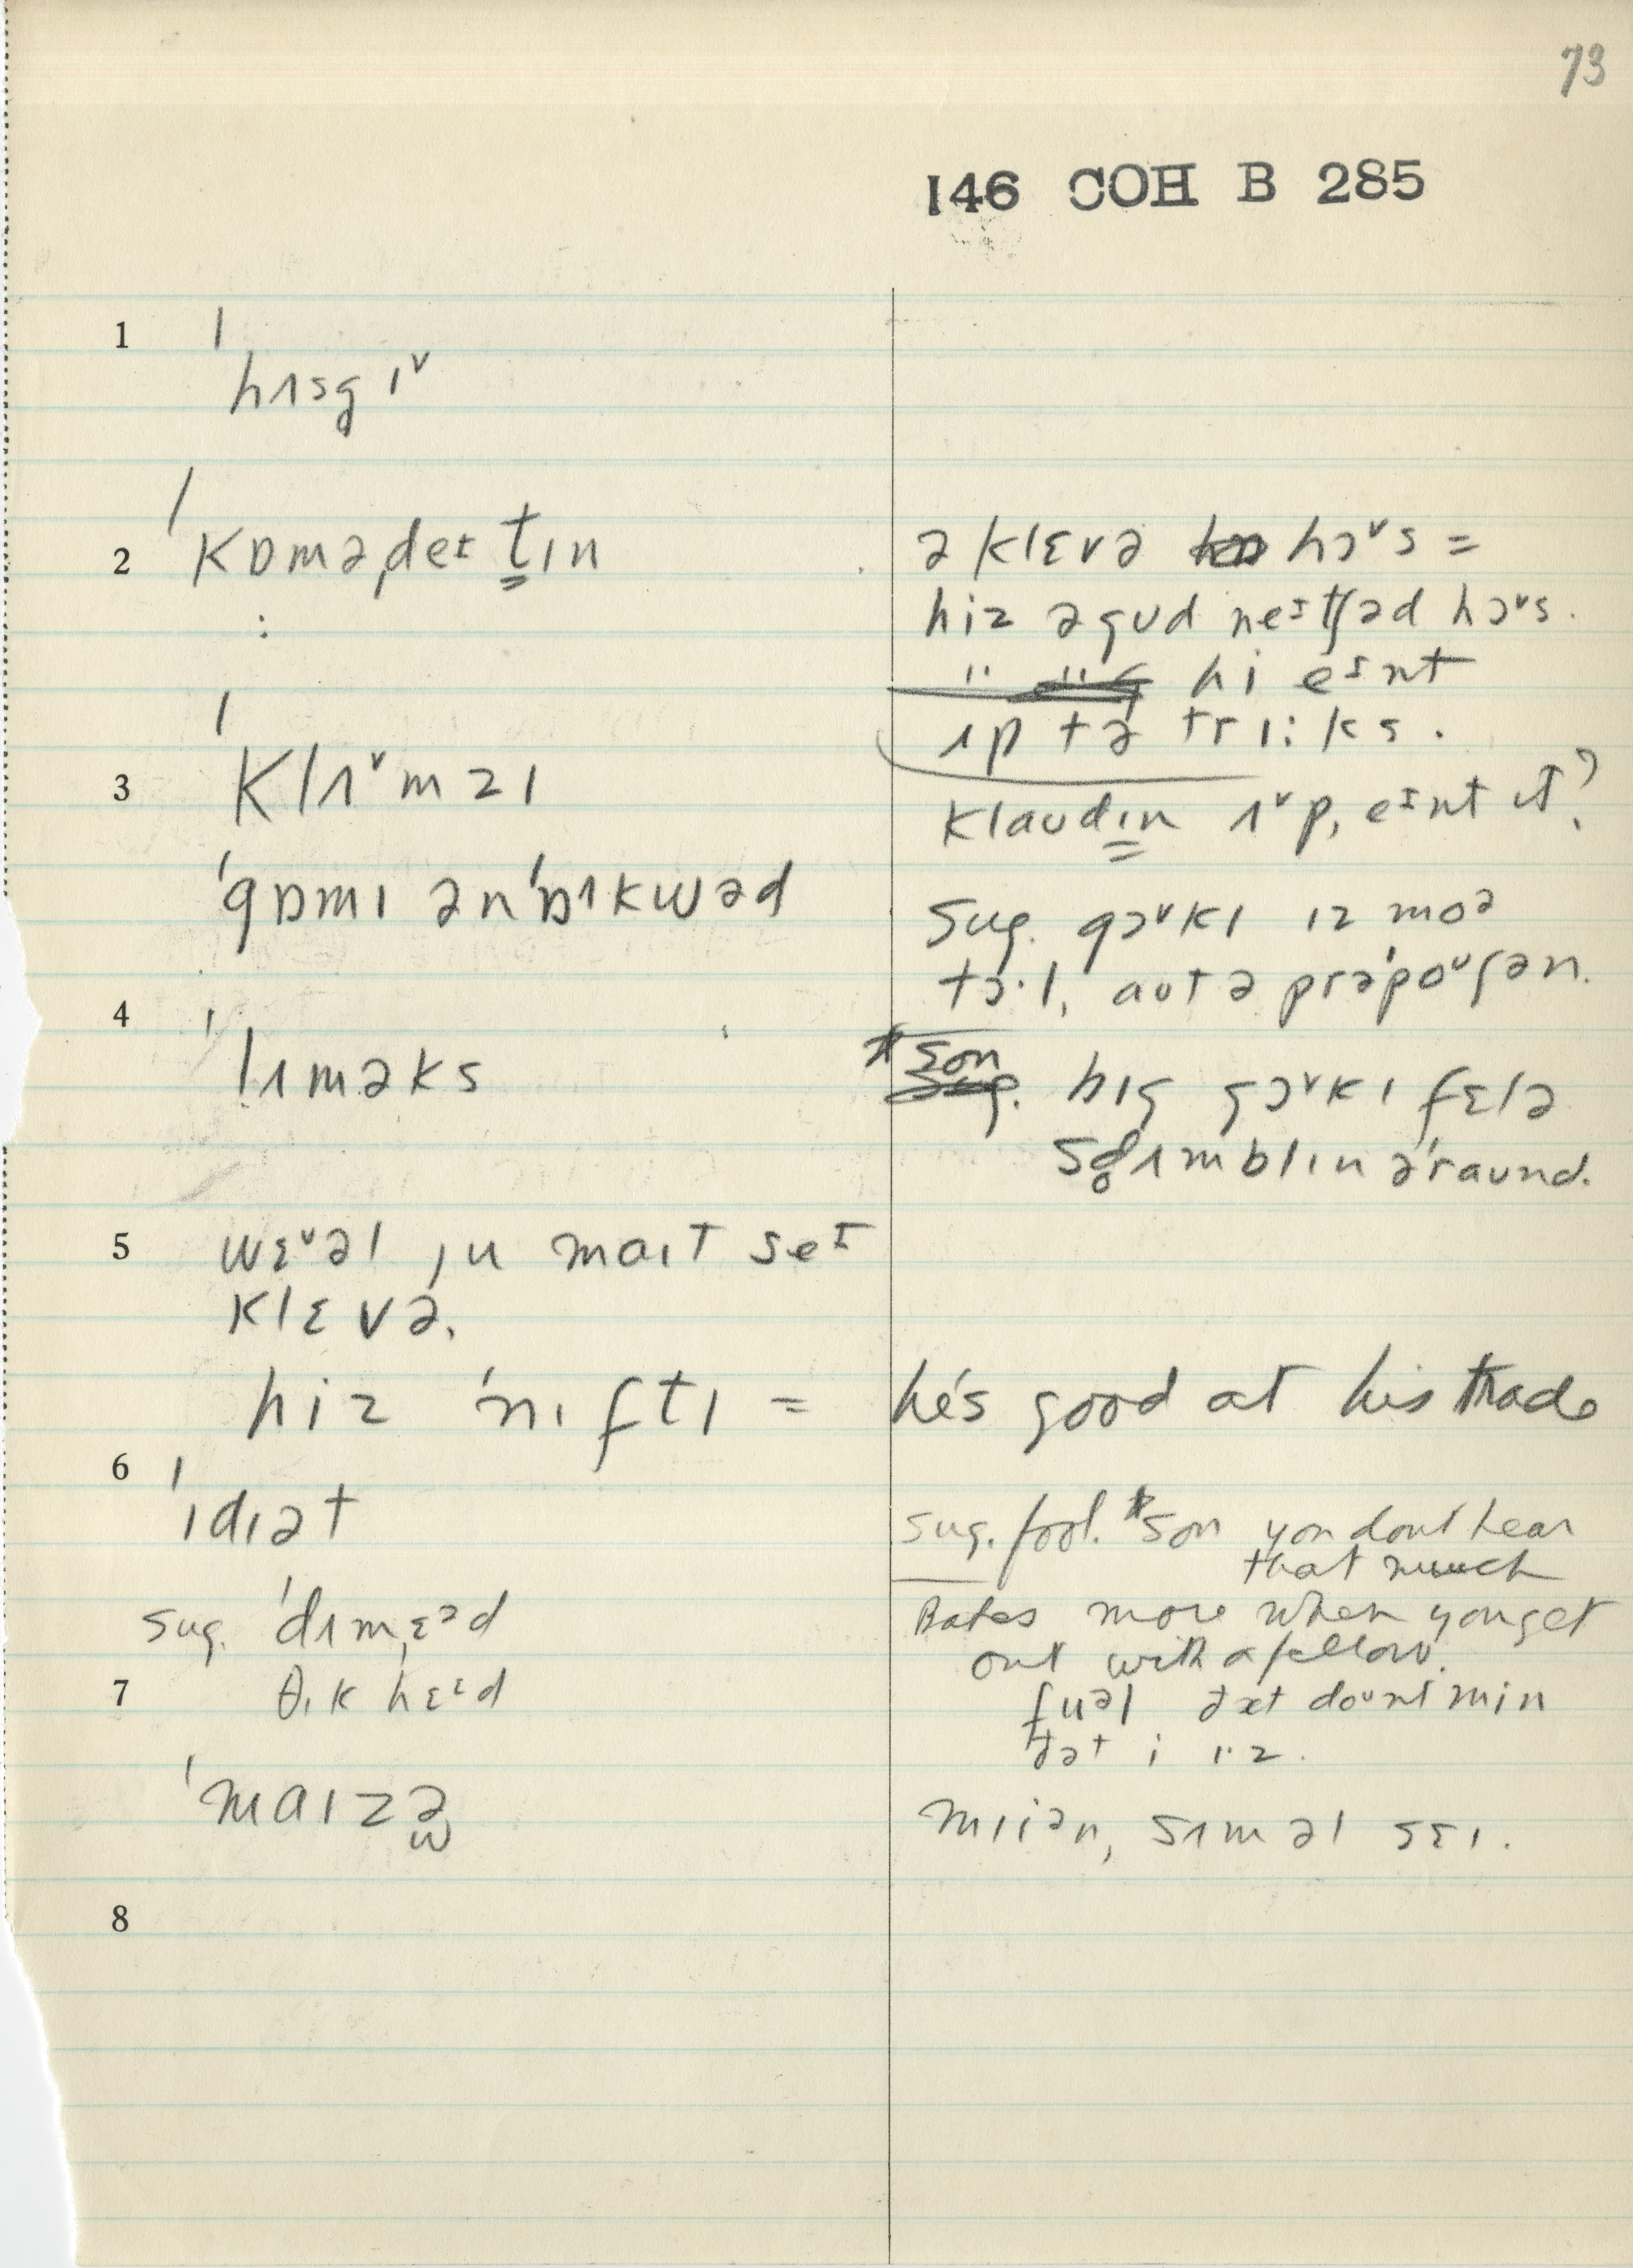 73
146 COH B 285
1
ˈhʌsgɪᵛ
2 ˈkɒməˌdeɪt̳ɪn
ə klɛvə hɔᵛs =
hiz ə gʊd neɪtʃəd hɔᵛs.
hi eɪnt
ʌp tə trɪ:ks.
3 ˈklʌᵛmzɪ
klaʊdɪn ʌᵛp, eɪnt ɪt?
ˈgɒmɪ ən ˈɒʌkwəd
sug. gɔᵛkɪ ɪz moə
tɔ·l, aʊt ə prəˈpoᵘʃən.
4
ˈlʌməks
*son
bɪg gɔᵛkɪ fɛlə
ʌmblɪn əˈraʊnd.
5 wɛᵘəl ju maɪt seɪ
klɛvə.
hiz ˈnɪftɪ = he's good at his trade
6
ˈɪdɪət
sug. fool. *son you don't hear
that much
sug. ˈdʌmˌɛəd
Bates more when you get
out with a fellow.
7 θɪk hɛɛd
fuəl ðæt doᵘnt min
ðət i ɪ·z.
ˈmaɪzə̫
miiən, sʌm əl sɛɪ.
8